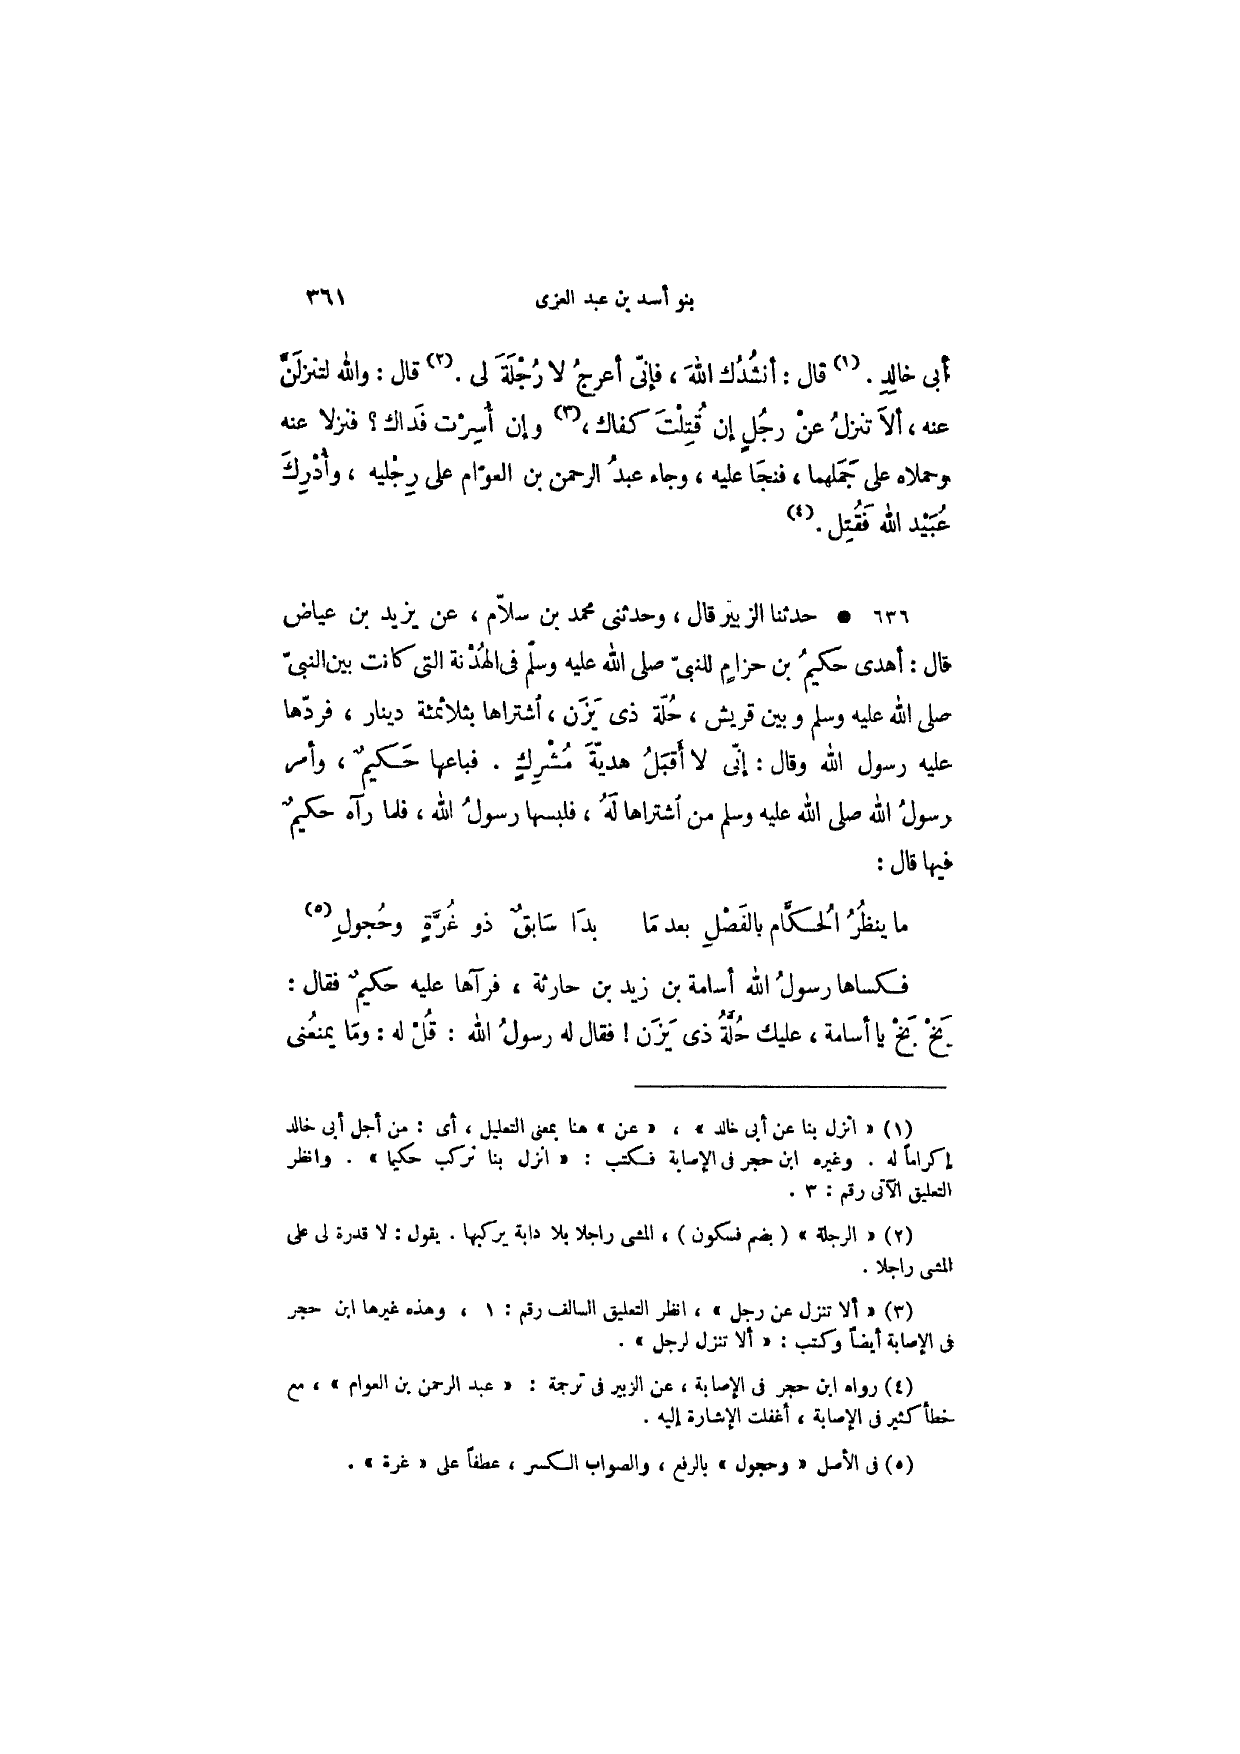 بنو أسد بن عبد العزى ٣٦١
أبى خالدٍ . (١) قال : أنشُدُك اللهَ ، فإنّى أعرجُ لا رُجْلَةَ لى . (٢) قال : والله لتنزلَنَّ
عنه ، ألاَ تنزلُ عنْ رجُلٍ إن قُتِلْتَ كفاك ، (٣) وإن أُسِرْت فَداك ؟ فنزلا عنه
وحملاه على جَمَلهما ، فنجَا عليه ، وجاء عبدُ الرحمن بن العوّام على رِجْليه ، وأُدْرِكَ
عُبَيْد الله فَقُتِل . (٤)
٦٣٦ ● حدثنا الزبير قال ، وحدثنى محمد بن سلاّم ، عن يزيد بن عياض
قال : أهدى حكيمُ بن حزامٍ للنبىّ صلى الله عليه وسلّم فى الهُدْنة التى كانت بين النبىّ
صلى الله عليه وسلم وبين قريش ، حُلّة ذى يَزَن ، ٱشتراها بثلاثمئة دينار ، فردّها
عليه رسول الله وقال : إنّى لا أَقبَلُ هديّةَ مُشْرِكٍ . فباعها حَكيمٌ ، وأمر
رسولُ الله صلى الله عليه وسلم من ٱشتراها لَهُ ، فلبسها رسولُ الله ، فلما رآه حكيمٌ
فيها قال :
ما ينظُرُ الُحكَّام بالفَصْلِ بعد مَا بدَا سَابقٌ ذو غُرَّةٍ وحُجولِ (٥)
فكساها رسولُ الله أسامة بن زيد بن حارثة ، فرآها عليه حكيمٌ فقال :
بَخْ بَخْ يا أسامة ، عليك حُلَّةُ ذى يَزَن ! فقال له رسولُ الله : قُلْ له : ومَا يمنعُنى
(١) « انزل بنا عن أبى خالد » ، « عن » هنا بمعنى التعليل ، أى : من أجل أبى خالد
إكراماً له . وغيره ابن حجر فى الإصابة فكتب : « انزل بنا نركب حكيما » . وانظر
التعليق الآتى رقم : ٣ .
(٢) « الرجلة » ( بضم فسكون ) ، المشى راجلا بلا دابة يركبها . يقول : لا قدرة لى على
المشى راجلا .
(٣) « ألا تنزل عن رجل » ، انظر التعليق السالف رقم : ١ ، وهذه غيرها ابن حجر
فى الإصابة أيضاً وكتب : « ألا تنزل لرجل » .
(٤) رواه ابن حجر فى الإصابة ، عن الزبير فى ترجمة : « عبد الرحمن بن العوام » ، مع
خطأ كثير فى الإصابة ، أغفلت الإشارة إليه .
(٥) فى الأصل « وحجول » بالرفع ، والصواب الكسر ، عطفاً على « غرة » .